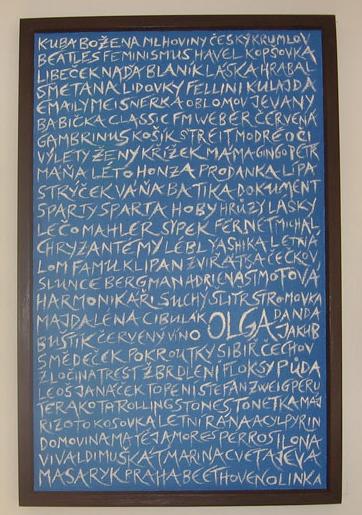 KUBA BOŽENA MLHOVINY ČESKÝ KRUMLOV
BEATLES FEMINISMUS HAVEL KOPŠOVKA
LIBEČEK NAĎA BLANÍK LÁSKA HRABAL
SMETANA LIDOVKY FELLINI KULAJDA
EMAILY MEISNERKA OBLOMOV JEVANY
BABIČKA CLASSIC FM WEBER ČERVENÁ
GAMBRINUS KOŠÍK STREIT MODRÉ OČI
VÝLETY ŽENY KŘÍŽEK MÁMA GINGO PETR
MÁŇA LÉTO HONZA PRODANKA LÍPA
STRÝČEK VÁŇA BATIKA DOKUMENT
SPARTY SPARTA HOBY HRŮZY LÁSKY
LEČO MAHLER SÝPEK FERNET MICHAL
CHRYZANTÉMY LÉBL YASHIKA LETNÁ
LOM FAMU KLIPAN ZVÍŘÁTKA ČEČKOV
SLUNCE BERGMAN ADRIENA SIMOTOVÁ
HARMONIKÁŘI SUCHÝ ŠLITR STROMOVKA
MAJDALÉNA CIBULÁK OLGA DANDA
BUŠTÍK ČERVENÝ VÍNO JAKUB
SMĚDEČEK POKROUTKY SIBIŘ ČECHOV
ZLOČIN A TREST ŽBRDLENÍ FLOKSY PŮDA
LEOŠ JANÁČEK TOPENÍ STEFAN ZWEIG PERU
TERAKOTA ROLLING STONES TONETKA MÁJ
RIZOTO KOSOVKA LETNÍ RÁNA ACYLPYRIN
DOMOVINA MATĚJ AMORES PERROS ILONA
VIVALDI MUŠKÁT MARINA CVETAJEVA
MASARYK PRAHA BEETHOVEN OLINKA